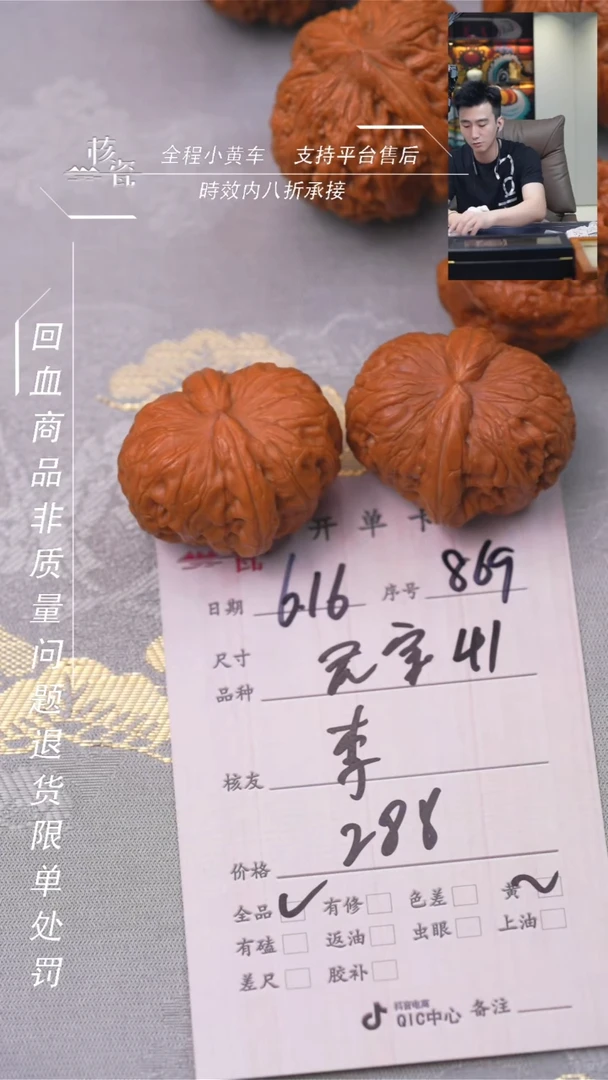 核瓷
全程小黄车 支持平台售后
時效内八折承接
回血商品非质量问题退货限单处罚
开单卡
日期 6.16 序号 869
尺寸
品种 元宝41
核友 李
价格 288
全品 ✓ 有修 色差 黄
有磕 返油 虫眼 上油
差尺 胶补
抖音电商
QIC中心 备注